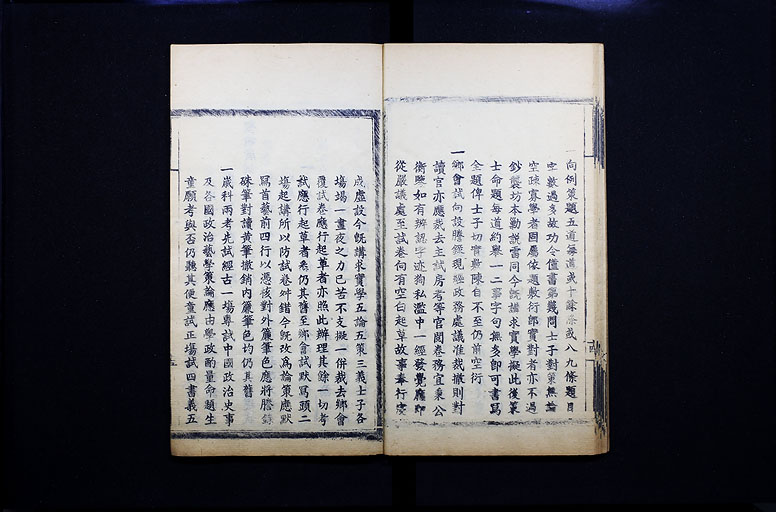 一向例策題五道每道或十餘條或八九條題目
字數過多故功令僅書第幾問士子對策無論
空疎寡學者固屬依題敷衍即實對者亦不過
鈔襲坊本勦說雷同今旣講求實學擬此後策
士命題每道約舉一二事字句無多即可書寫
全題俾士子切實敷陳自不至仍前空衍
一鄉會試向設謄錄現經政務處議准裁撤則對
讀官亦應裁去主試房考等官閱卷務宜秉公
衡鑒如有辨認字迹徇私濫中一經發覺應即
從嚴議處至試卷向有空白起草故事奉行虛
成虛設今旣講求實學五論五策三義士子各
塲塲一晝夜之力已苦不支擬一併裁去鄉會
覆試卷應行起草者亦照此辦理其餘一切考
試應行起草者悉仍其舊至鄉會試默寫頭二
塲起講所以防試卷舛錯今旣改爲論策應默
寫首藝前四行以憑核對外簾筆色應將謄錄
硃筆對讀黃筆撤銷內簾筆色均仍其舊
一歲科兩考先試經古一塲專試中國政治史事
及各國政治藝學策論應由學政酌量命題生
童願考與否仍聽其便童試正塲試四書義五